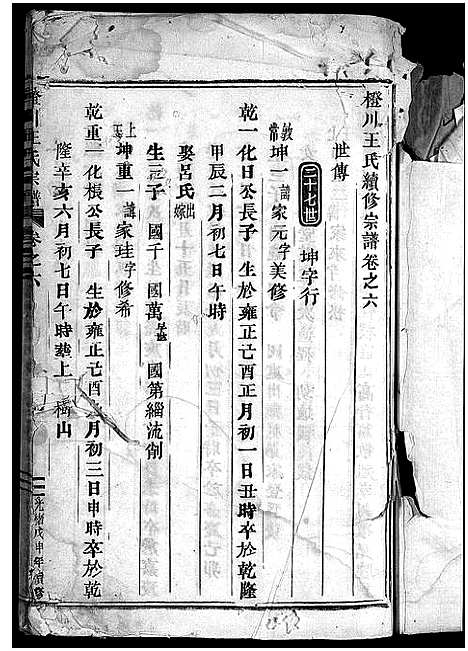 橙川王氏續修宗譜卷之六
世傳
三十七世 坤字行
敦常坤一諱家元字美修
乾一化日公長子 生於雍正己酉正月初一日丑時卒於乾隆
甲辰二月初七日午時
娶呂氏出嫁
生三子 國千 國萬 國第緇流削
坤重一諱家珪字修希
乾重一化棖公長子 生於雍正己酉 月初三日申時卒於乾
隆辛亥六月初七日午時葬上 樹山
川王氏宗譜 卷之六
光緒戊申年續修